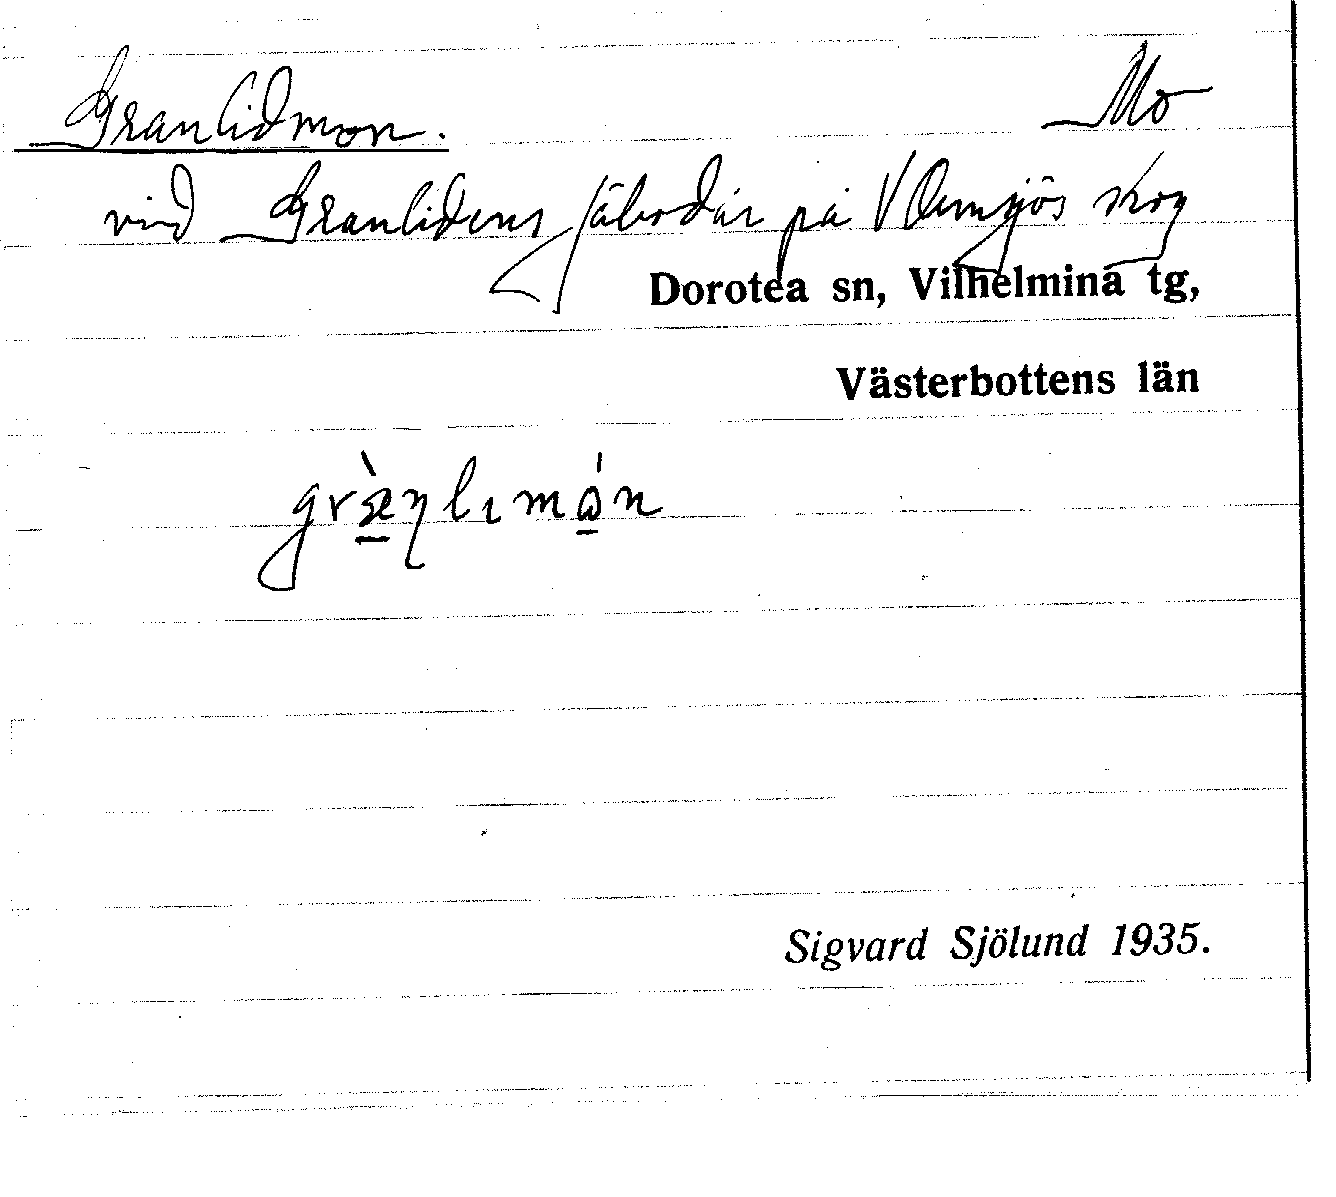 Granlidmon. Mo
vid Granlidens fäbodar på V Ormsjös skog
Dorotea sn, Vilhelmina tg,
Västerbottens län
græ̀ŋlımɷ́n
Sigvard Sjölund 1935.